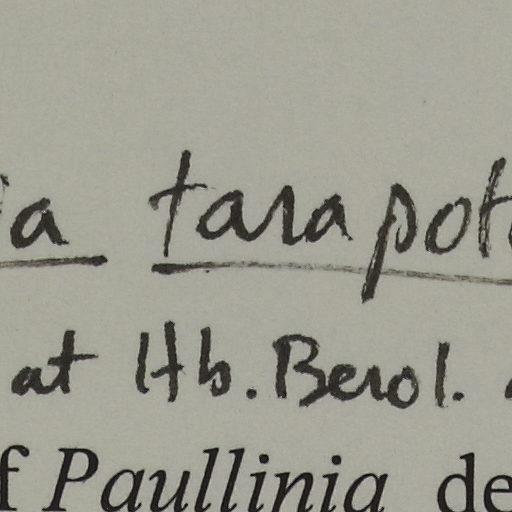 a tarapot
at Hb. Berol.
f Paullinia de